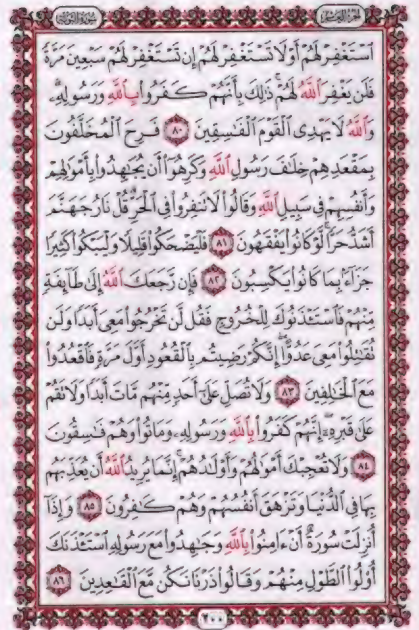 الجزء العاشر سورة التوبة
ٱسْتَغْفِرْ لَهُمْ أَوْ لَا تَسْتَغْفِرْ لَهُمْ إِن تَسْتَغْفِرْ لَهُمْ سَبْعِينَ مَرَّةً
فَلَن يَغْفِرَ ٱللَّهُ لَهُمْ ذَٰلِكَ بِأَنَّهُمْ كَفَرُوا۟ بِٱللَّهِ وَرَسُولِهِۦ
وَٱللَّهُ لَا يَهْدِى ٱلْقَوْمَ ٱلْفَٰسِقِينَ ٨٠ فَرِحَ ٱلْمُخَلَّفُونَ
بِمَقْعَدِهِمْ خِلَٰفَ رَسُولِ ٱللَّهِ وَكَرِهُوٓا۟ أَن يُجَٰهِدُوا۟ بِأَمْوَٰلِهِمْ
وَأَنفُسِهِمْ فِى سَبِيلِ ٱللَّهِ وَقَالُوا۟ لَا تَنفِرُوا۟ فِى ٱلْحَرِّ قُلْ نَارُ جَهَنَّمَ
أَشَدُّ حَرًّا لَّوْ كَانُوا۟ يَفْقَهُونَ ٨١ فَلْيَضْحَكُوا۟ قَلِيلًا وَلْيَبْكُوا۟ كَثِيرًا
جَزَآءًۢ بِمَا كَانُوا۟ يَكْسِبُونَ ٨٢ فَإِن رَّجَعَكَ ٱللَّهُ إِلَىٰ طَآئِفَةٍ
مِّنْهُمْ فَٱسْتَـْٔذَنُوكَ لِلْخُرُوجِ فَقُل لَّن تَخْرُجُوا۟ مَعِىَ أَبَدًا وَلَن
تُقَٰتِلُوا۟ مَعِىَ عَدُوًّا إِنَّكُمْ رَضِيتُم بِٱلْقُعُودِ أَوَّلَ مَرَّةٍ فَٱقْعُدُوا۟
مَعَ ٱلْخَٰلِفِينَ ٨٣ وَلَا تُصَلِّ عَلَىٰٓ أَحَدٍ مِّنْهُم مَّاتَ أَبَدًا وَلَا تَقُمْ
عَلَىٰ قَبْرِهِۦٓ إِنَّهُمْ كَفَرُوا۟ بِٱللَّهِ وَرَسُولِهِۦ وَمَاتُوا۟ وَهُمْ فَٰسِقُونَ
٨٤ وَلَا تُعْجِبْكَ أَمْوَٰلُهُمْ وَأَوْلَٰدُهُمْ إِنَّمَا يُرِيدُ ٱللَّهُ أَن يُعَذِّبَهُم
بِهَا فِى ٱلدُّنْيَا وَتَزْهَقَ أَنفُسُهُمْ وَهُمْ كَٰفِرُونَ ٨٥ وَإِذَآ
أُنزِلَتْ سُورَةٌ أَنْ ءَامِنُوا۟ بِٱللَّهِ وَجَٰهِدُوا۟ مَعَ رَسُولِهِ ٱسْتَـْٔذَنَكَ
أُو۟لُوا۟ ٱلطَّوْلِ مِنْهُمْ وَقَالُوا۟ ذَرْنَا نَكُن مَّعَ ٱلْقَٰعِدِينَ ٨٦
٢٠٠